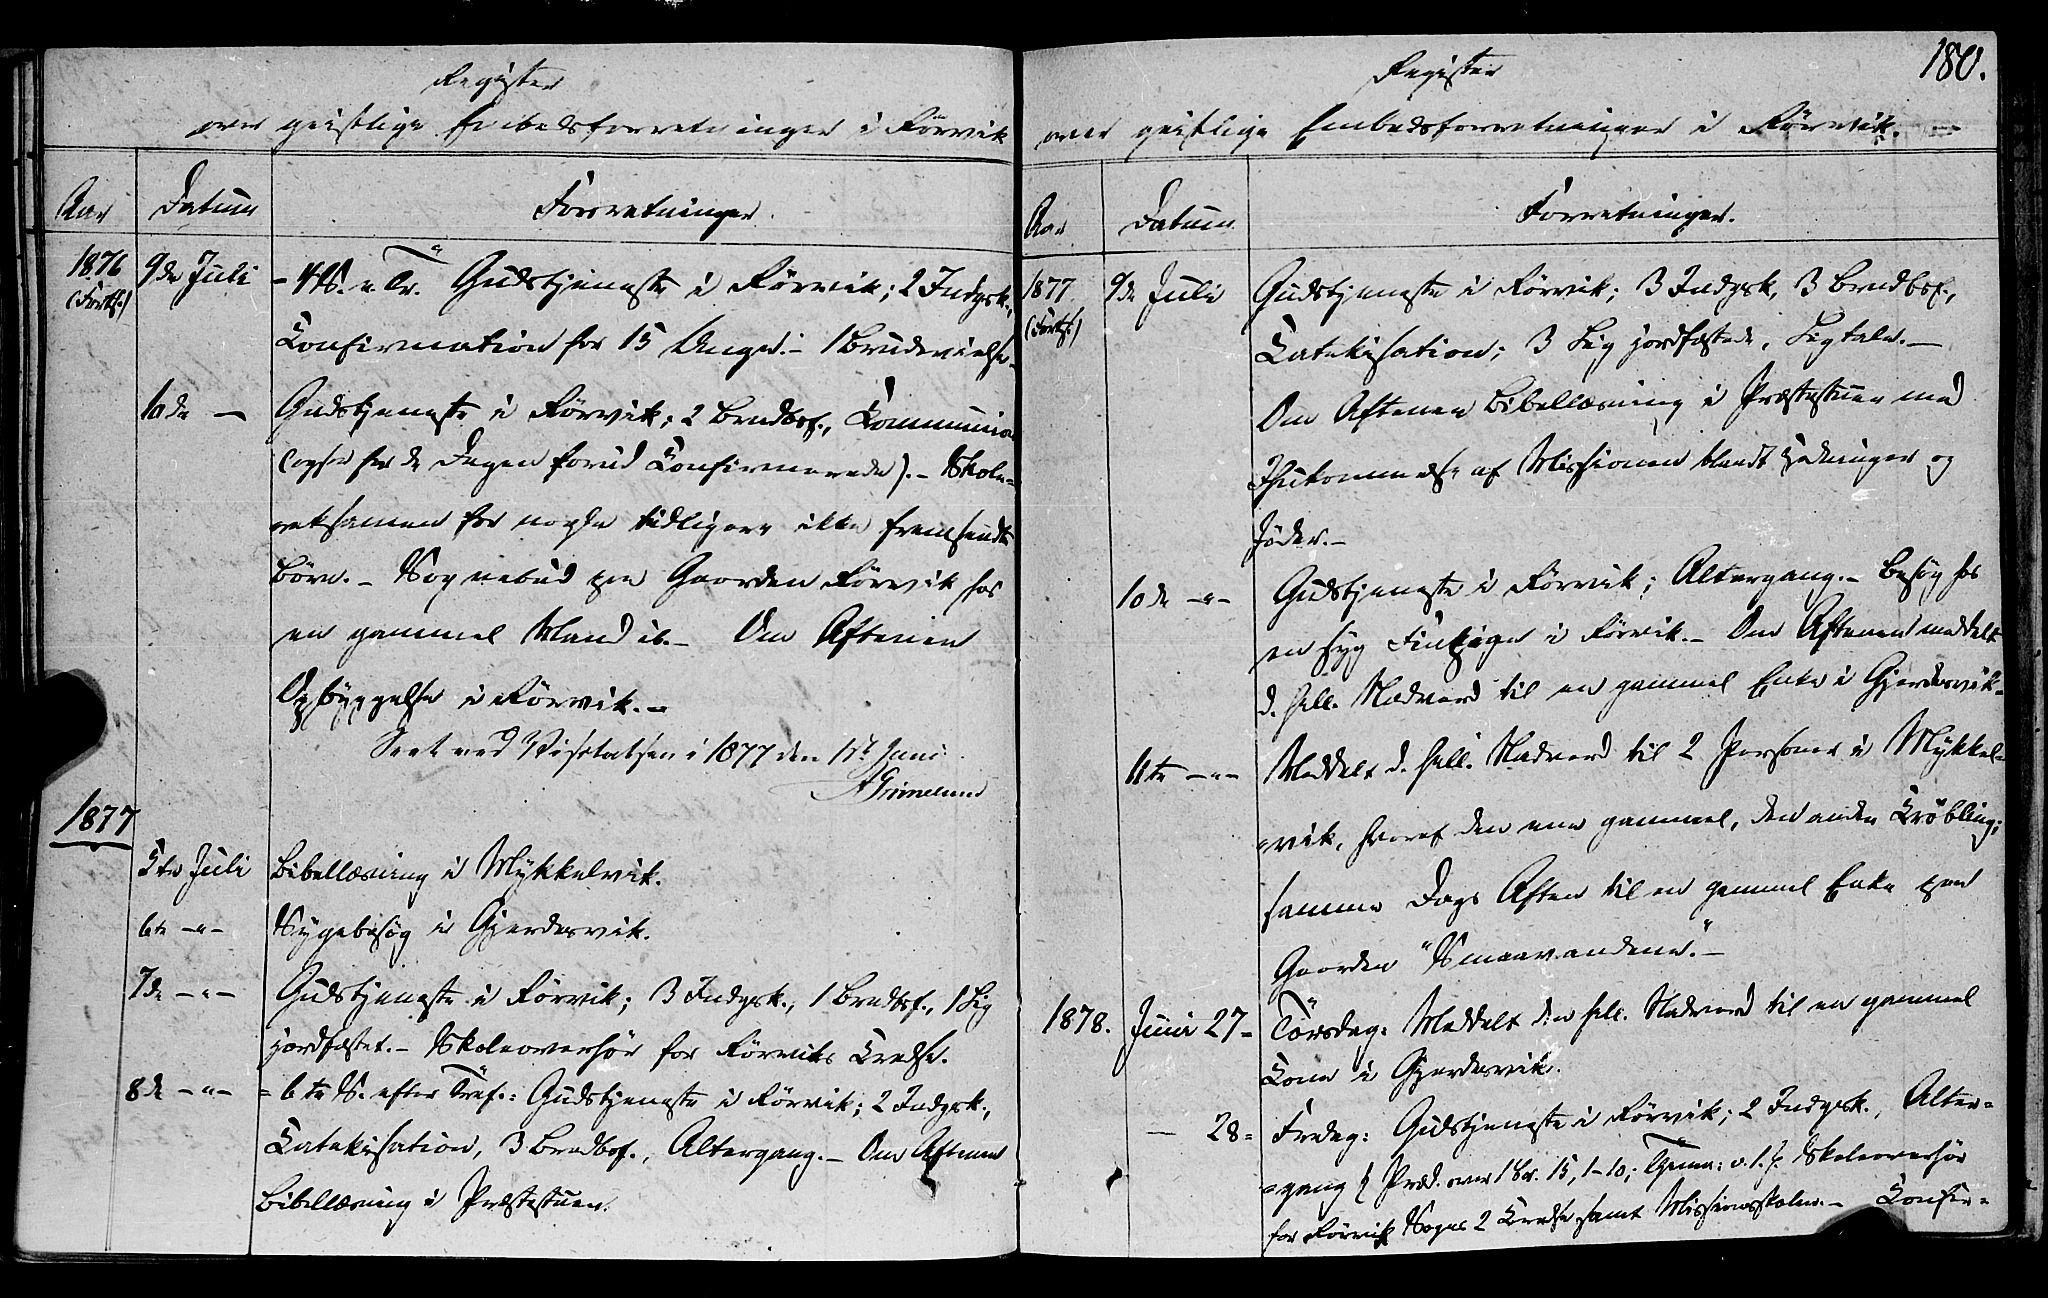 Register
over geistlige Embedsforretninger i Rörvik
Aar Datum Forretninger.
1876 9de Juli - 4 S. e. Tr. Gudstjeneste i Rörvik; 2 Indgsk.,
(Forts.) Confirmation for 15 Unge. - 1 Brudevielse -
10de — Gudstjeneste i Rörvik; 2 Brudbsf., Kommunion
(ogsaa for de Dagen forud Confirmerede). - Skole-
eksamen for nogle tidligere ikke fremsendte
Börn. - Sognebud paa Gaarden Rörvik hos
en gammel Mand ib. - Om Aftenen
Opbyggelse i Rörvik. -
Seet ved Visitatsen i 1877 den 1ste Juni
AGrimelund
1877
5te Juli Bibellæsning i Mykkelvik.
6te -"- Sygebesög i Gjerdesvik.
7de -"- Gudstjeneste i Rörvik; 3 Indgsk., 1 Brudbsf., 1 Lig
jordfæstet. - Skoleoverhör for Rörviks Credse.
8de -"- = 6te S. efter Tref.: Gudstjeneste i Rörvik; 2 Indgsk.,
Catekisation, 3 Brudbsf., Altergang. - Om Aftenen
Bibellæsning i Præstestuen.
180.
Register
over geistlige Embedsforretninger i Rörvik. —
Aar Datum Forretninger.
1877 9de Juli Gudstjeneste i Rörvik; 3 Indgsk, 3 Brudbsf.,
(Forts.) Catekisation; 3 Lig jordfæstede, Ligtale. —
Om Aftenen Bibellæsning i Præstestuen med
Ihukommelse af Missionen blandt Hedninger og
Jöder. -
10de -"- Gudstjeneste i Rörvik; Altergang. - Besög hos
en syg Finpige i Rörvik. - Om Aftenen meddelt
d. hell. Nadverd til en gammel Enke i Gjerdesvik -
11te -"- Meddelt d. hell. Nadverd til 2 Personer i Mykkel-
=vik, hvoraf den ene gammel, den anden Kröbling;
samme Dags Aften til en gammel Enke paa
Gaarden "Smaavandene." -
1878. Juni 27 - Törsdag: Meddelt den hell. Nadverd til en gammel
Kone i Gjerdesvik.
— 28 = Fredag: Gudstjeneste i Rörvik; 2 Indgsk., Alter=
=gang Præd. over 1 Cor. 15, 1-10; Skoleoverhör
for Rörvik Sogns 2 Credse samt Missionsskolen. - Confir=